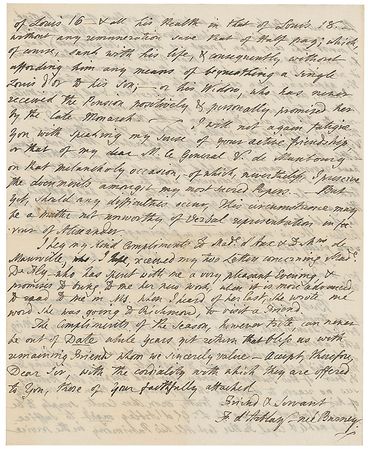 of Louis 16 — & all his Health in that of Louis 18 —
without any remuneration save that of Half pay; which,
of course, sunk with his life, & consequently without
affording him any means of bequeathing a single
Louis d'or to his Son, — or his Widow, who has never
received the Pension positively & personally promised her
by the late Monarch — I will not again fatigue
you with speaking my sense of your active friendship
or that of my dear M. le General V. de
on that melancholy occasion, of which, nevertheless, I preserve
the documents amongst my most sacred Papers. But
yet, should any difficulties occur, this circumstance may
be a matter not unworthy of verbal representation in fa-
vour of Alexander
I beg my kind Compliments to & de
Maurville, I hope, received my two Letters concerning
who has spent with me a very pleasant Evening, &
promises to bring to me her new work, when it is more advanced
to read to me in Ms. when I heard of her last, she wrote me
word she was going to Richmond, to visit a Friend.
The compliments of the Season, however trite, can never
be out of Date while Years yet return that bless us with
remaining Friends whom we sincerely value — Accept, therefore,
Dear Sir, with the cordiality with which they are offered
to You, those of your faithfully attached
Friend & Servant
F. d'Arblay née Burney